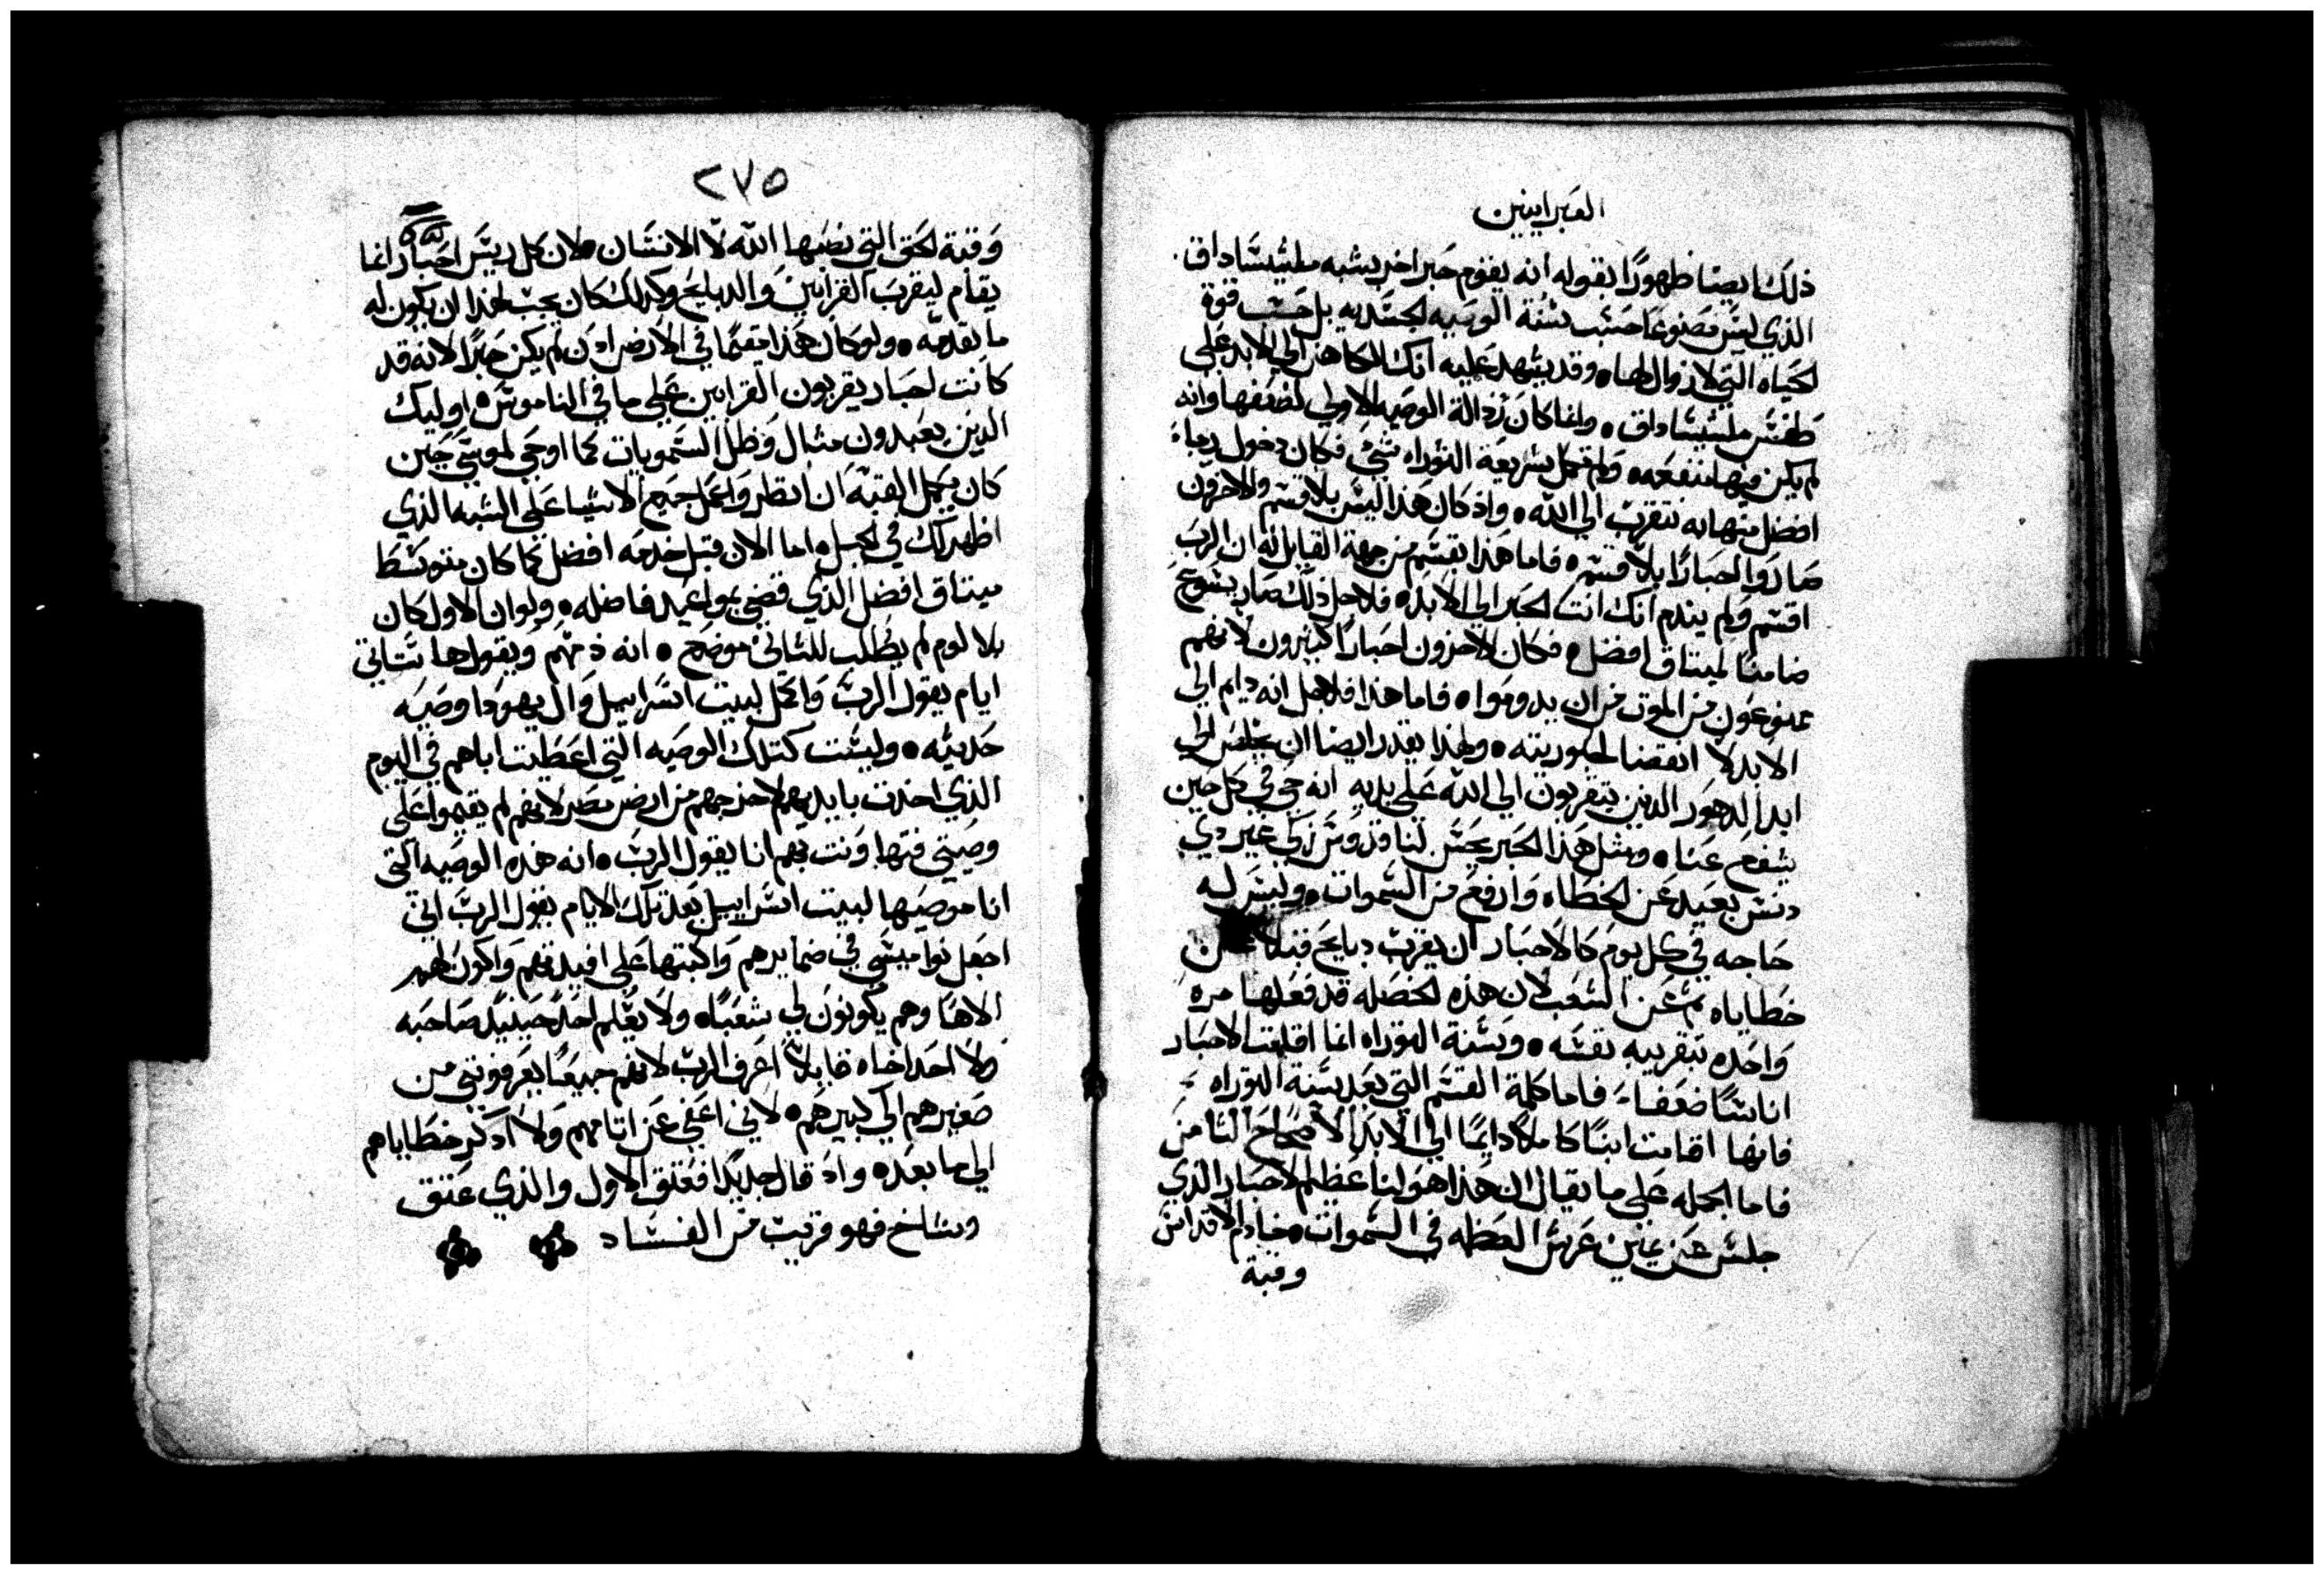 العبرانيين
ذلك ايضا ظهورًا بقوله انه يقوم حبر اخر يشبه ملشيساداق
الذي ليس مصنوعا حسب سنة الوصيه الجسديه بل حسب قوة
الحياه التي لا زوال لهاه وقد يشهد عليه انك الكاهن الي الابد علي
طقس ملشيساداق ه وانما كان رذالة الوصيه الاولي لضعفها وانه
لم يكن فيها منفعه ه ولم تكمل شريعة التوراه شي فكان دخول رجاء
افضل منها به نتقرب الي الله ه واذ كان هذا ليس بلا قسم والاخرون
صاروا احبارًا بلا قسم ه فاما هذا بقسم من جهة القايل له ان الرب
اقسم ولم يندم انك انت الحبر الي الابد ه فلاجل ذلك صار يسوع
ضامنا لميتاق افضل ه فكان الاخرون احبارًا كثيرون لانهم
ممنوعون من الموت من ان يدوموا ه فاما هذا فلاجل انه دايم الي
الابد لا انقضا لحبوريته ه ولهذا يقدر ايضا ان يخلص الي
ابد الدهور الذين يتقربون الي الله علي يديه انه حي في كل حين
يشفع عنا ه ومثل هذا الحبر يحسن لنا قدوس زكي غير دي
دنس بعيد عن الخطاه وارفع من السموات ه وليس له
حاجه في كل يوم كالاحبار ان يقرب دبايح قبلا عن
خطاياه ثم عن الشعب لان هذه الخصله قد فعلها مره
واحده بتقريبه نفسه ه وسنة التوراه انما اقامت الاحبار
اناسًا ضعفاء فاما كلمة القسم التي بعد سنة التوراه
فانها اقامت ابنًا كاملًا دايمًا الي الابد الاصحاح التامن
فاما الجمله علي ما يقال ان هذا هو لنا عظيم الاحبار الذي
جلس عن يمين عرش العظمه في السموات ه خادم الاقداس
وقبة
٢٧٥
وقبة الحق التي نصبها الله لا الانسان ه لان كل ريس احبار انما
يقام ليقرب القرابين والدبايح وكدلك كان يجب لهذا ان يكون له
ما يقدمه ه ولو كان هذا مقيمًا في الارض ادن لم يكن حبرًا لانه قد
كانت احبار يقربون القرابين علي ما في الناموس ه اوليك
الدين يعبدون متال وظل السمويات كما اوحي لموسي حين
كان يكمل القبة ان انظر واعمل جميع الاشيا علي الشبه الذي
اظهر لك في الجبل ه اما الان قبل خدمه افضل كما كان متوسط
ميتاق افضل الذي قضي بمواعيد فاضله ه ولو ان الاول كان
بلا لوم لم يطلب للثاني موضع ه انه ذمهم ويقول ها ستاتي
ايام يقول الرب واكمل لبيت اسراييل وال يهودا وصيه
حديثه ه وليست كتلك الوصيه التي اعطيت اباهم في اليوم
الذي اخدت بايديهم لاخرجهم من ارض مصر لانهم لم يقيموا علي
وصيتي فتهاونت بهم انا يقول الرب ه انه هذه الوصيه التي
انا موصيها لبيت اسراييل بعد تلك الايام يقول الرب اني
اجعل نواميسي في ضمايرهم واكتبها علي افيدتهم واكون لهم
الاهًا وهم يكونون لي شعبًاه ولا يعلم احد حينيد صاحبه
ولا احد اخاه قايلا اعرف الرب لانهم جميعًا يعرفونني من
صغيرهم الي كبيرهم ه لاني اعفي عن اتامهم ولا ادكر خطاياهم
الي ما بعد ه واد قال جديدًا فعتق الاول والذي عتق
وشاخ فهو قريب من الفساد